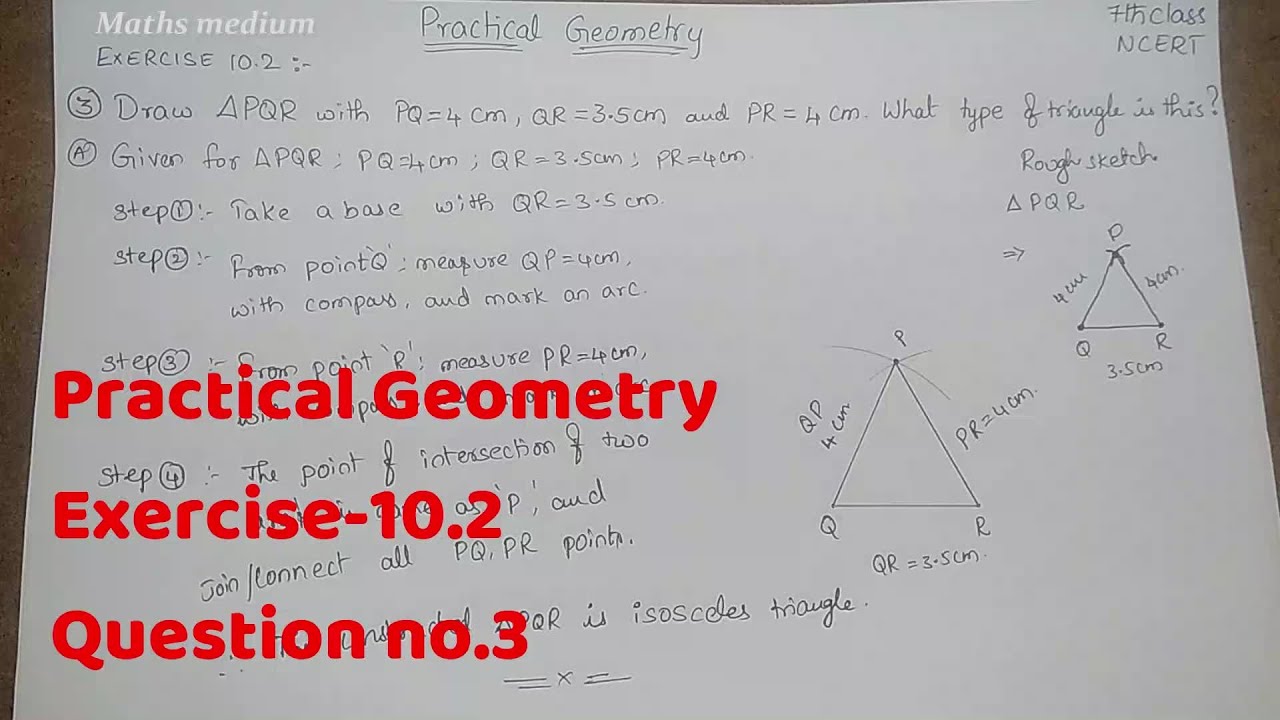 Maths medium
Practical Geometry
7th class
NCERT
EXERCISE 10.2 :-
③ Draw △PQR with PQ=4 cm, QR=3.5cm and PR=4cm. What type of triangle is this?
Ⓐ Given for △PQR ; PQ=4cm ; QR=3.5cm ; PR=4cm.
Rough sketch
step① :- Take a base with QR=3.5 cm.
△ PQR
step② :- From point 'Q' ; measure QP=4cm,
with compass, and mark an arc.
⇒
P
4 cm
4cm.
Q
R
3.5cm
step③ :- From point 'R' ; measure PR=4cm,
Practical Geometry
step④ :- The point of intersection of two
as 'P', and
Exercise-10.2
Join/connect all PQ, PR points.
△PQR is isosceles triangle.
Question no.3
= x =
P
QP
4 cm
PR=4cm.
Q
R
QR = 3.5cm.